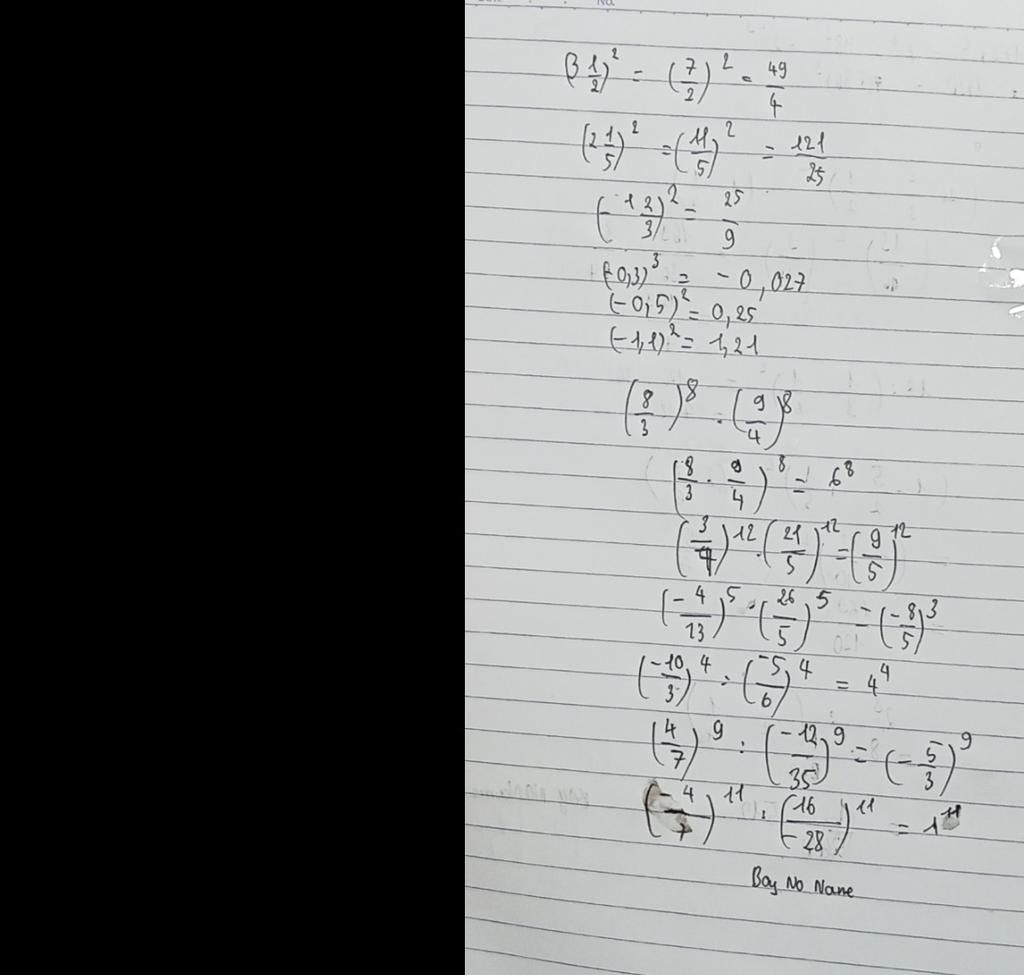 No.
(3 1/2)² = (7/2)² = 49/4
(2 1/5)² = (11/5)² = 121/25
(- 1 2/3)² = 25/9
(-0,3)³ = - 0,027
(-0,5)² = 0,25
(-1,1)² = 1,21
(8/3)⁸ . (9/4)⁸
(8/3 . 9/4)⁸ = 6⁸
(3/7)¹² . (21/5)¹² = (9/5)¹²
(-4/13)⁵ . (26/5)⁵ = (-8/5)³
(-10/3)⁴ : (-5/6)⁴ = 4⁴
(4/7)⁹ : (-12/35)⁹ = (- 5/3)⁹
(-4/7)¹¹ : (16/-28)¹¹ = 1¹¹
Boy No Name